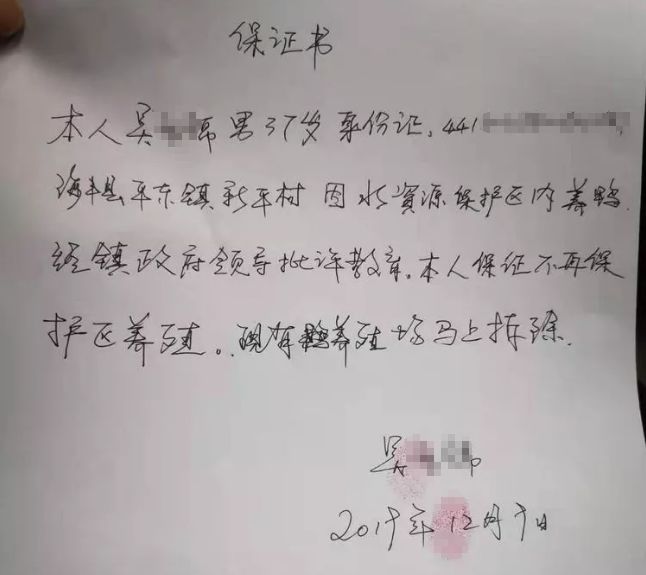 保证书
本人吴 帅男37岁身份证,441
海丰县平东镇新平村 因水资源保护区内养鸭.
经镇政府领导批评教育。本人保证不再保
护区养殖。现有养殖场马上拆除.
吴 帅
2019年12月9日